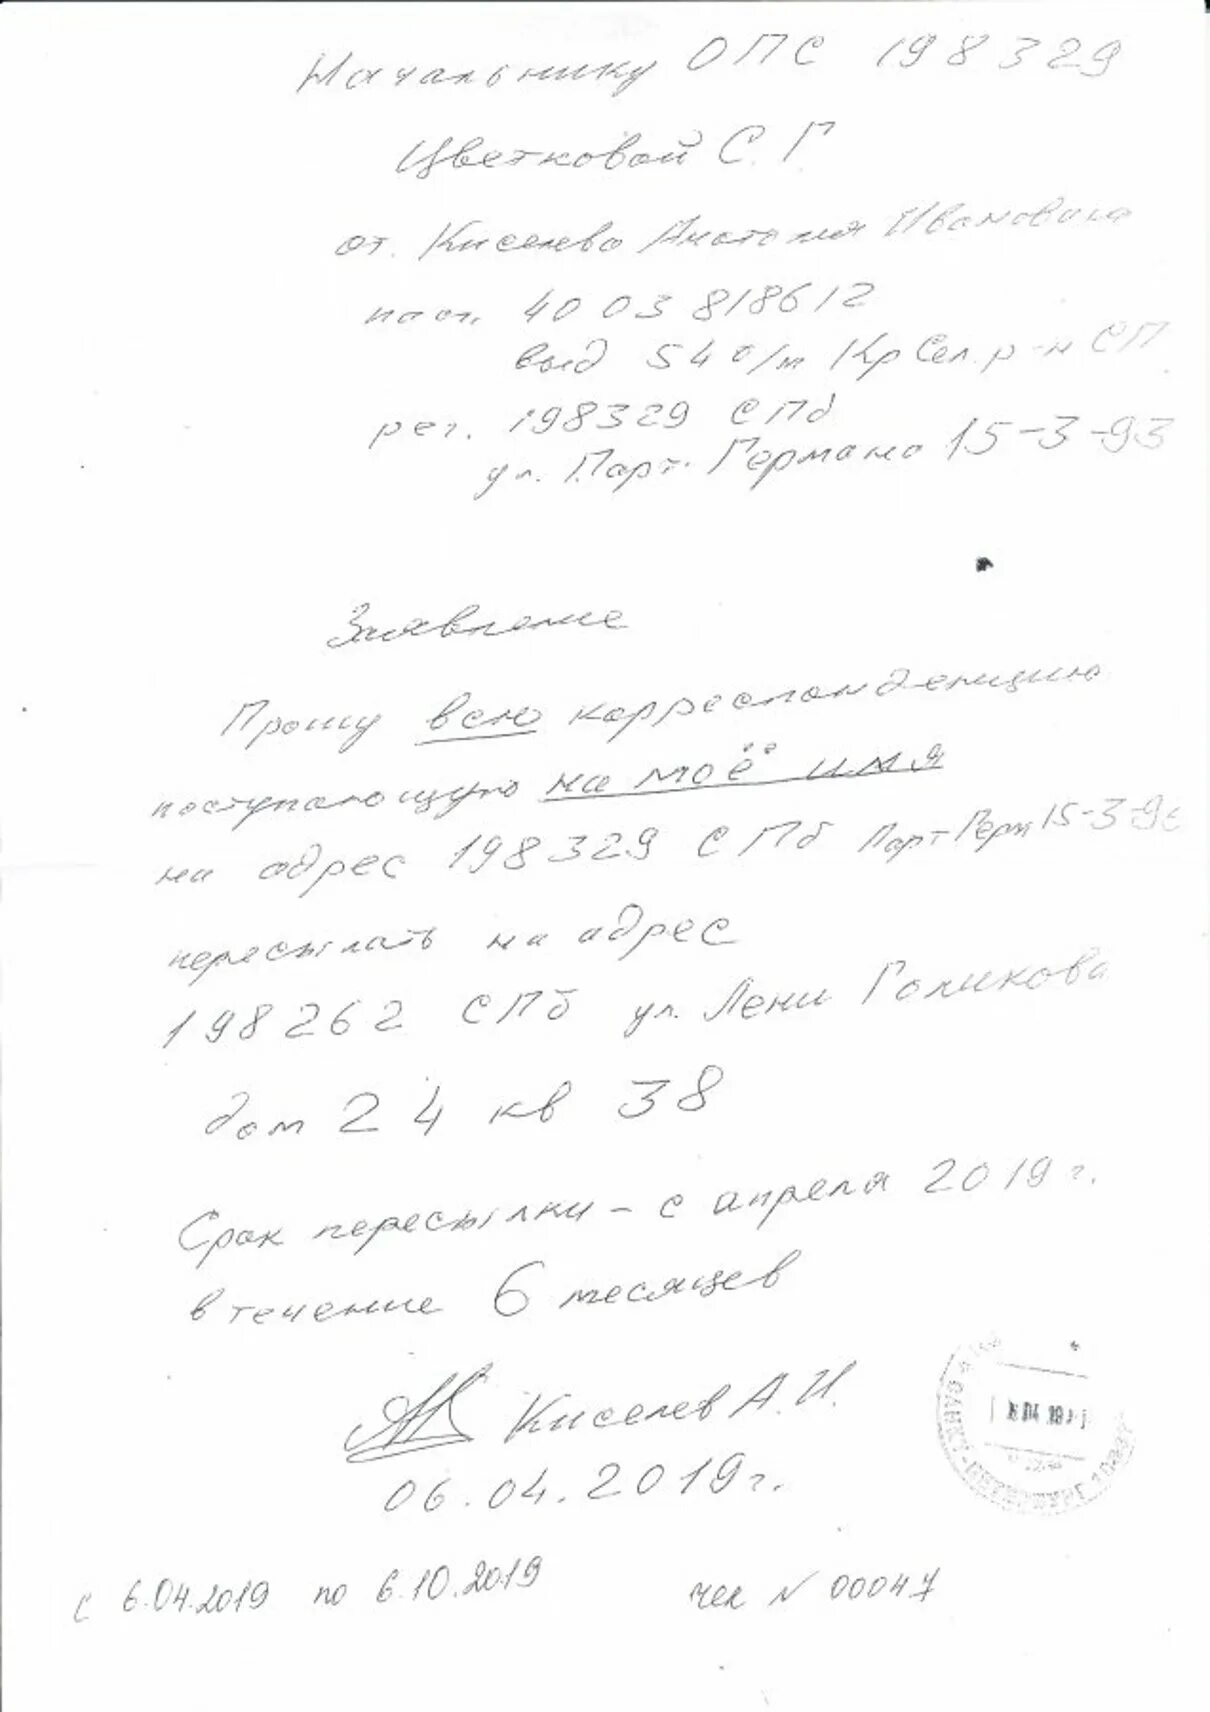 Начальнику ОПС 198329
Цветковой С.Г
от. Киселева Анатолия Ивановича
пасп. 40 03 818612
выд 54 о/м Кр Сел. р-н СП
рег. 198329 СПб
ул. Парт. Германа 15-3-93
Заявление
Прошу всю корреспонденцию
поступающую на моё имя
на адрес 198329 СПб Парт Герм 15-3-93
пересылать на адрес
198262 СПб ул. Лени Голикова
дом 24 кв 38
Срок пересылки – с апреля 2019 г.
в течение 6 месяцев
Киселев А.И.
06.04.2019г.
САНКТ-ПЕТЕРБУРГ
с 6.04.2019 по 6.10.2019 чек N 00047